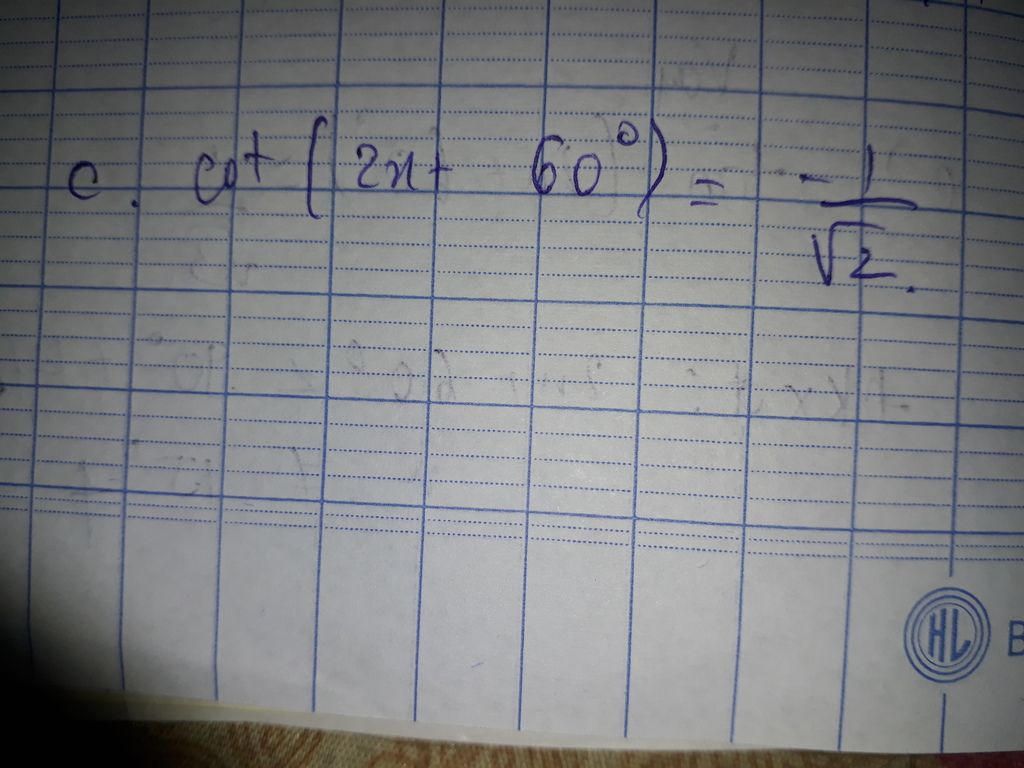 c. cot (2x + 60°) = -1/√2.
HL B